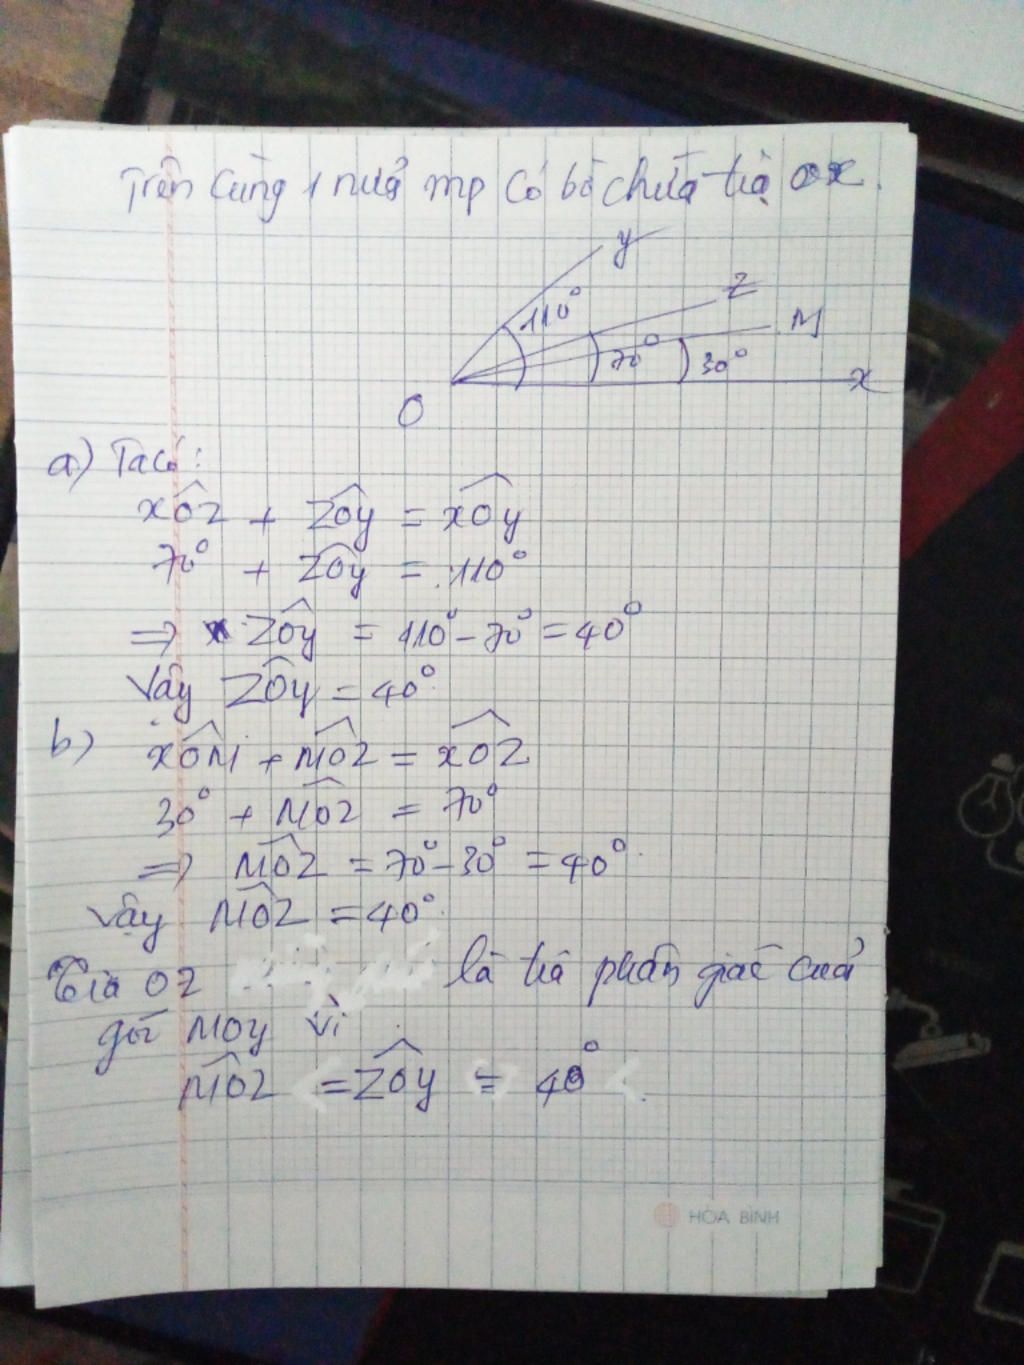 Trên cùng 1 nửa mp có bờ chứa tia Ox.
y
110°
z
M
70°
30°
x
O
a) Ta có:
xOz + zOy = xOy
70° + zOy = 110°
=> zOy = 110° - 70° = 40°
Vậy zOy = 40°.
b) xOM + MOz = xOz
30° + MOz = 70°
=> MOz = 70° - 30° = 40°.
Vậy MOz = 40°.
Tia Oz là tia phân giác của
góc MOy vì
MOz = zOy = 40°.
HÒA BÌNH